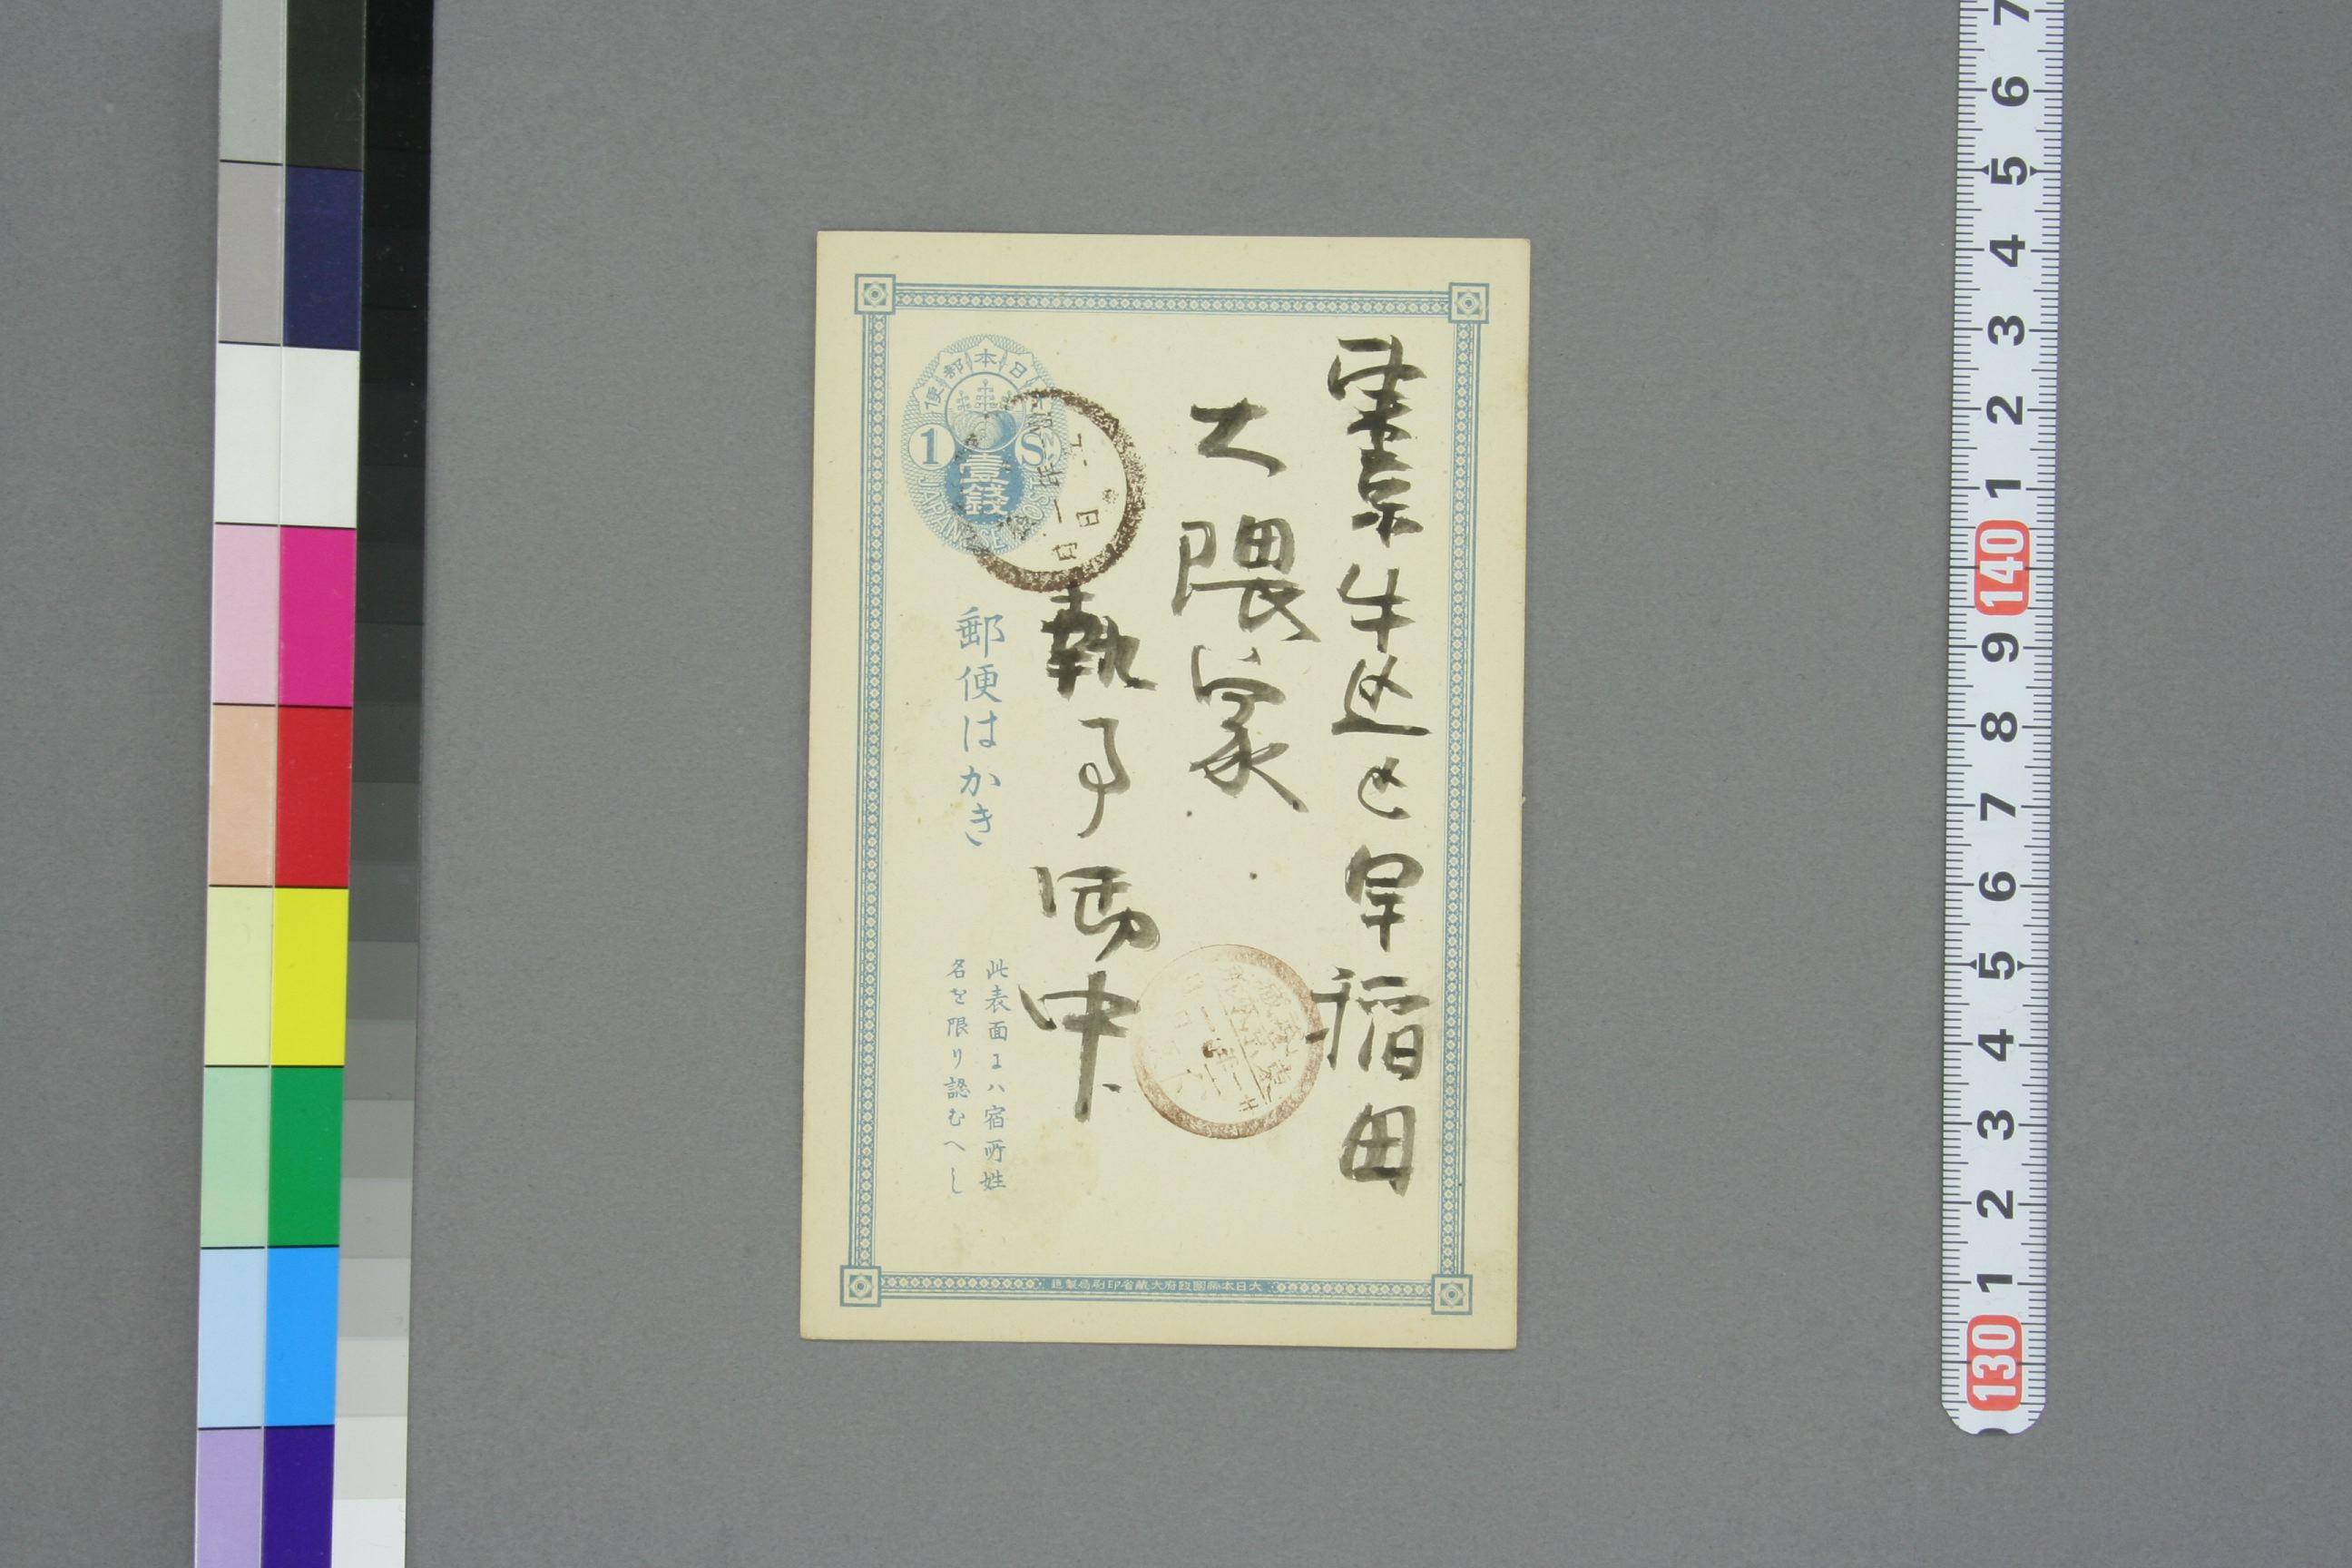 東京牛込区早稲田
大隈家
執事御中
日本郵便
1 Sⁿ
壹錢
JAPANESE POST
郵便はかき
此表面にハ宿所姓
名を限り認むへし
大日本帝國政府大藏省印刷局製造
7
6
5
4
3
2
1
140
9
8
7
6
5
4
3
2
1
130